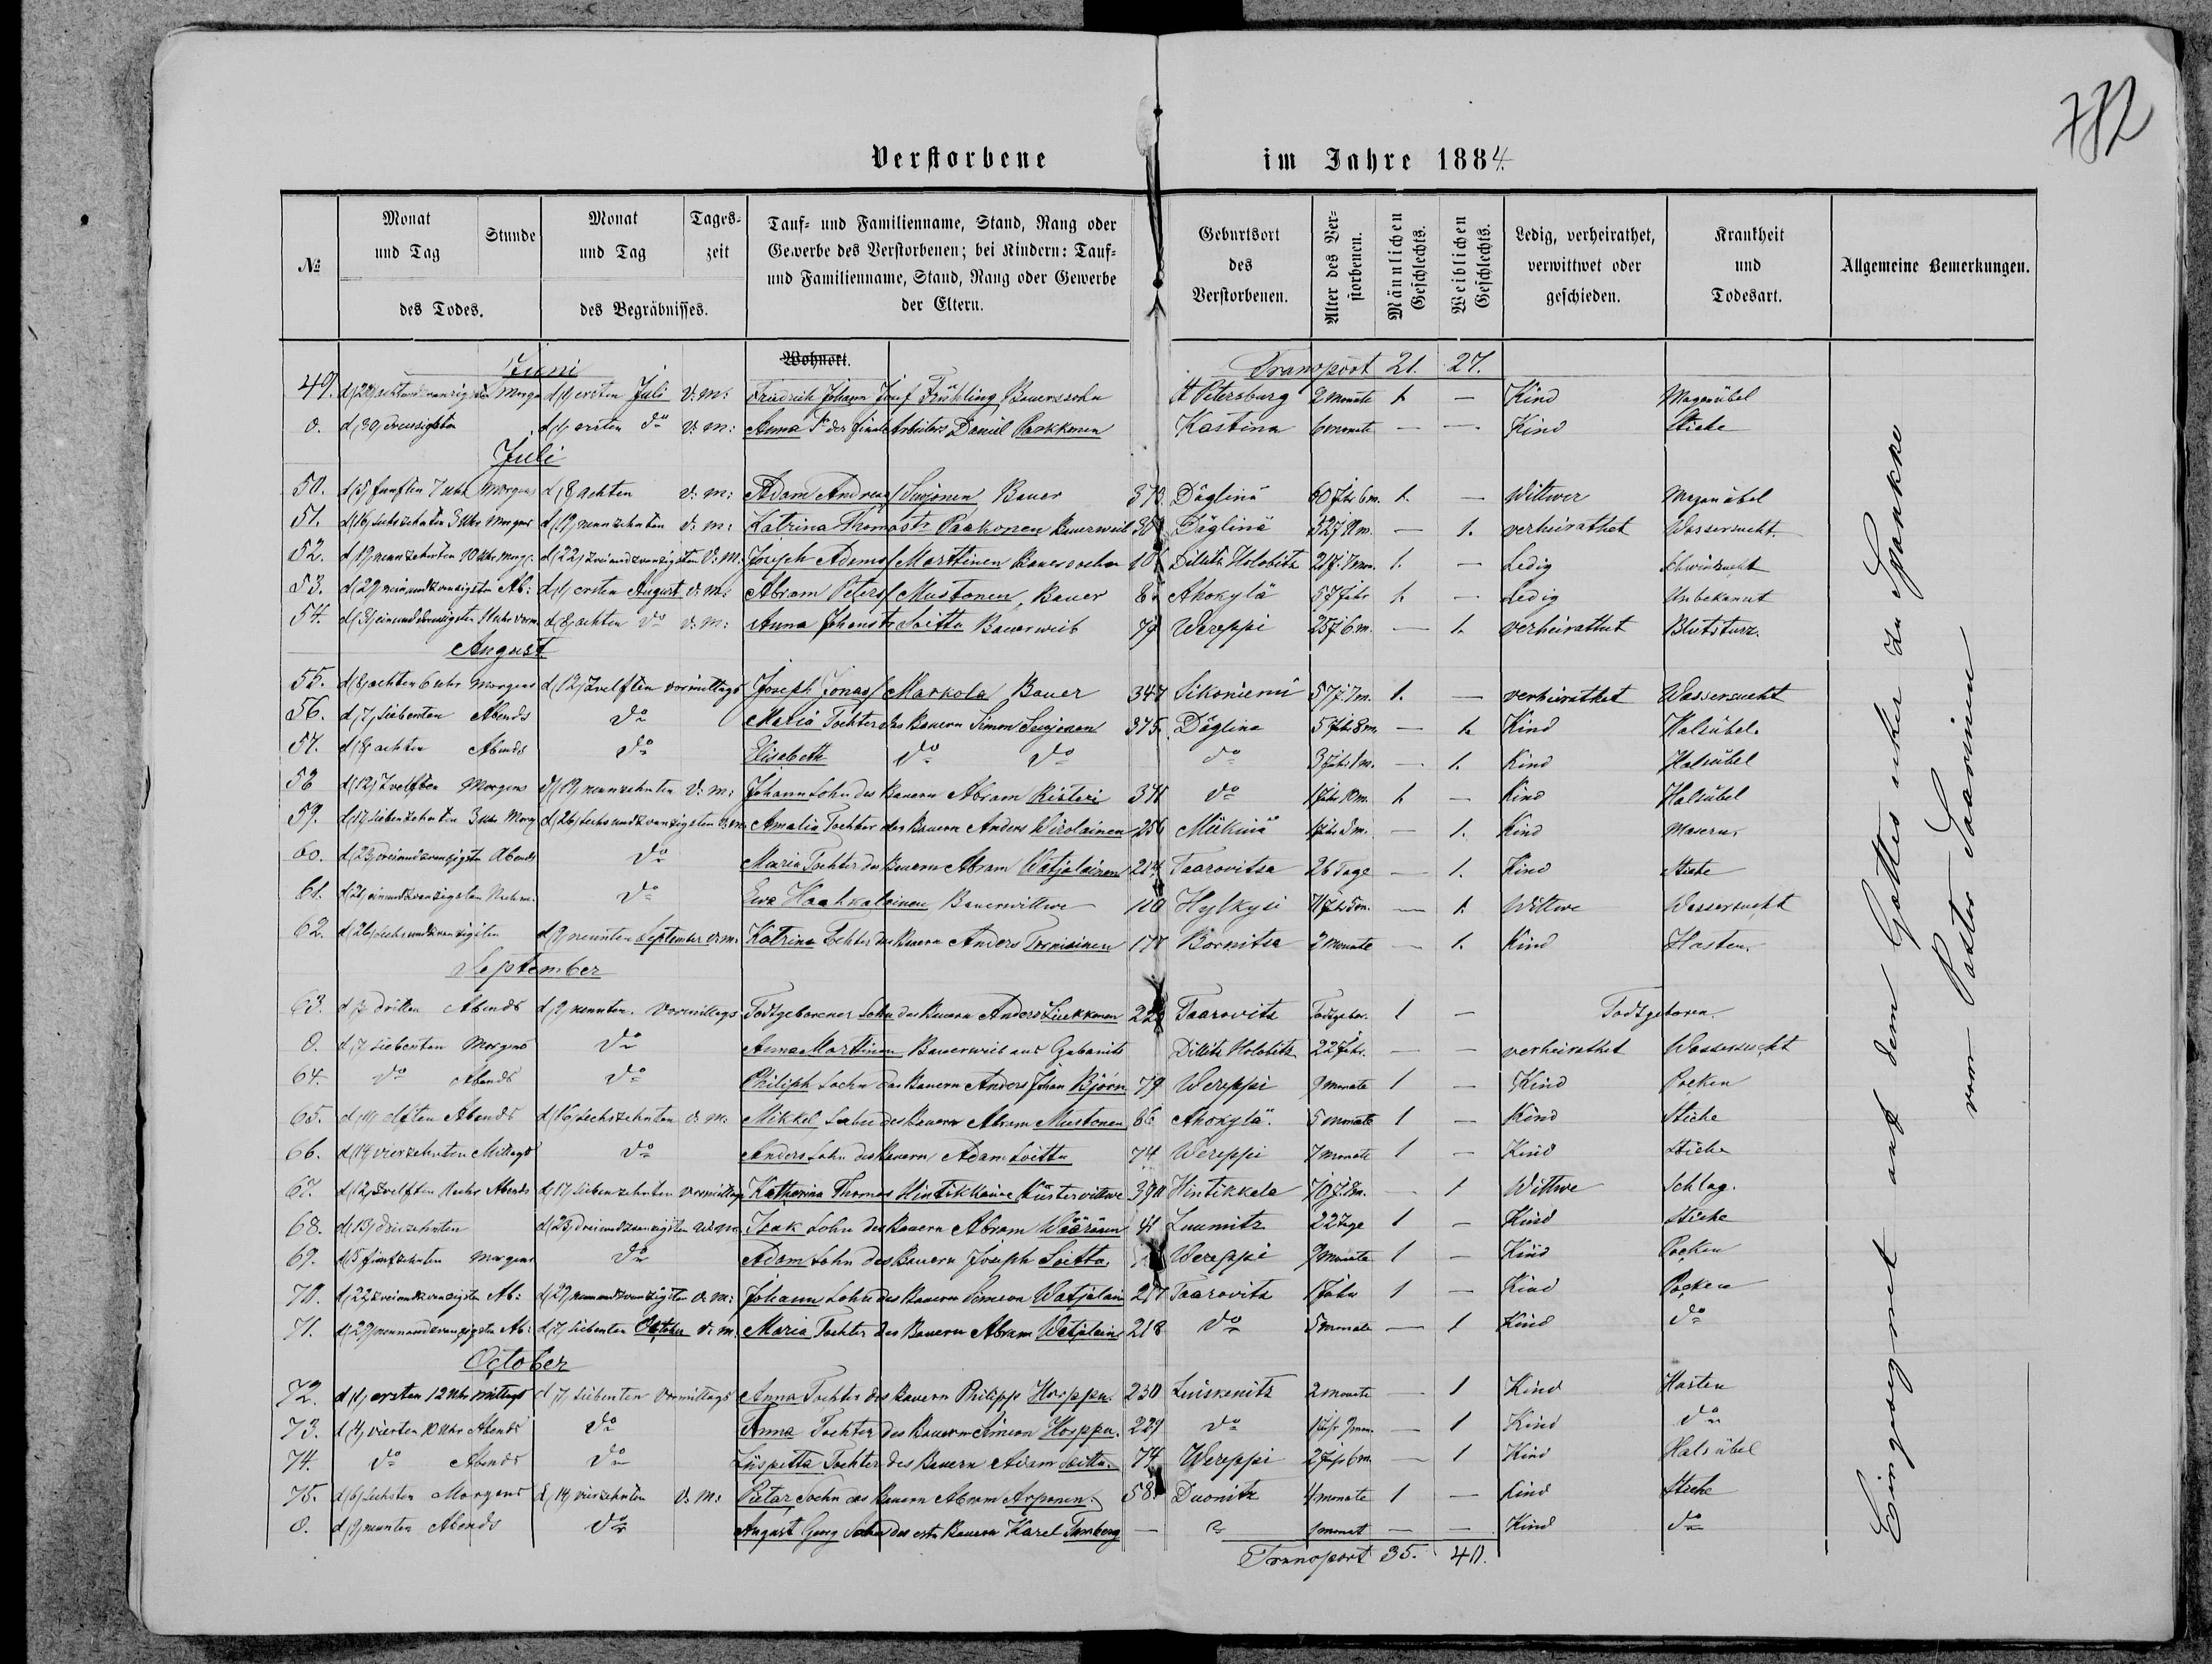 782
Verstorbene im Jahre 1884.
№ Monat und Tag Stunde des Todes. Monat und Tag Tages-zeit des Begräbnisses. Tauf- und Familienname, Stand, Rang oder Gewerbe des Verstorbenen; bei Kindern: Tauf- und Familienname, Stand, Rang oder Gewerbe der Eltern. Geburtsort des Verstorbenen. Alter des Verstorbenen. Männlichen Geschlechts. Weiblichen Geschlechts. Ledig, verheirathet, verwittwet oder geschieden. Krankheit und Todesart. Allgemeine Bemerkungen.
Wohnort.
Juni Transport 21. 27.
49. d (1) ersten Juli V: M: Friedrich Johann Josef Frühling Bauerssohn St Petersburg 2 Monate 1. — Kind Magenübel
0. d (30) dreissigsten d (1) ersten do V: M: Anna Daniel Paakkonen Kastina 6 monate — — Kind Stiche
Juli
50. d (5) fünften 7 Uhr Morgens d (8) achten V: M: Adam Andreas Suojonen Bauer 373 Däglinä 60 Jhr 6 m. 1. — Wittwer Magenübel
51. d (16) sechszehnten 3 Uhr Morgens d (19) neunzehnten V: M: Katrina Thomastr Paakonen Bauerweib Däglinä — 1. verheirathet Wassersucht.
52. d (19) neunzehnten 10 Uhr Morg. d (22) zweiundzwanzigsten V: M: Joseph Adams Marttinen Bauerssohn Dillitz Holobitz 1. — Ledig Schwindsucht
53. d (29) neunundzwanzigsten Ab: d (1) ersten August V: M: Abram Peters Mustonen, Bauer Ahokylä 57 Jahr 1. — Ledig Unbekannt
54. d (31) einunddreissigsten 11 Uhr Vorm. d (8) achten do V: M: Anna Johanstr Soittu Bauerweib Wereppi 25 J 6 m. — 1. verheirathet Blutsturz.
August
55. d (8) achten 6 Uhr Morgens d (12) zwelften Vormittags Joseph Jonas Markola Bauer 347 Sikoniemi 57 J 7 m. 1. — verheirathet Wassersucht
56. d (7) siebenten Abends do Maria Tochter des Bauern Simon Suojonen 375. Däglina 5 Jahr 8 m. — 1. Kind Halsübel.
57. d (8) achten Abends do Elisabeth do do do 3 Jahr 1 m. — 1. Kind Halsübel
58 d (12) Zwelften Morgens d (19) neunzehnten V: M: Johann Sohn des Bauern Abram Risteri 371 do 1 Jahr 10 m. 1. — Kind Halsübel
59. d (17) Siebenzehnten 3 Uhr Morg. d (26) sechsundzwanzigsten V: m. Amalia Tochter des Bauern Anders Wirolainen 256 Mükinä — 1. Kind Masern.
60. d (23) dreiundzwanzigsten Abends do Maria Tochter des Bauern Abram Watjalainen 214 Taarovitsa 26 Tage — 1. Kind Stiche
61. d (21) einundzwanzigsten Nachm. do Ewa Haahkalainen Bauerwittwe 110 Hylkysi — 1. Wittwe Wassersucht
62. d (26) sechsundzwanzigsten d (9) neunten September V: m: Katrina Tochter des Bauern Anders 177 Bornitsa 2 monate — 1. Kind Hosten.
September
63. d (3) dritten Abends d (9) neunten. Vormittags Todtgeborener Sohn des Bauern Anders Liukkonen 22 Taarovitz Todtgebor. 1 — Todtgeboren.
0. d (7) siebenten Morgens do Anna Marttinen Bauerweib aus Gubanitz Dillitz Holobitz 22 Jahr. — — verheirathet Wassersucht
64. do Abends do Philiph Sohn des Bauern Anders Johan Björn 79 Wereppi 9 monate 1 — Kind Pocken
65. d (11) elften Abends d (16) sechszehnten V: M: Mikkel Sohn des Bauern Abram Mustonen 86 Ahokylä. 5 monate 1 — Kind Stiche
66. d (14) vierzehnten Mittags do Anders Sohn des Bauern Adam Soittu 74 Wereppi 7 monate 1 — Kind Stiche
67. d (12) Zwelften Abends d (17) siebenzehnten Vormittags Katharina Thomas Hintikkaine Küsterwittwe 390 Hintikkala 70 J. 8 m. — 1 Wittwe Schlag.
68. d (13) dreizehnten d (23) dreiundzwanzigsten V: M: Isak Sohn des Bauern Abram Wääränen 41 Luumitz 22 Tage 1 — Kind Stiche
69. d (15) fünfzehnten Morgens do Adam Sohn des Bauern Joseph Soittu Wereppi 9 monate 1 — Kind Pocken
70. d (22) zweiundzwanzigsten Ab: d (29) neunundzwanzigsten V: M: Johann Sohn des Bauern Simeon Watjalain 217 Taarovitz 1 Jahr 1 — Kind Pocken
71. d (29) neunundzwanzigsten Ab: d (7) siebenten October V: M. Maria Tochter des Bauern Abram Watjalain 218 do 5 monate — 1 Kind do
October
72. d (1) ersten 12 Uhr Mittags d (7) siebenten Vormittags Anna Tochter des Bauern Philipp Horppu. 230 Luiskonitz 2 monate — 1 Kind Hosten
73. d (4) vierten 10 Uhr Abends do Anna Tochter des Bauern Simeon Horppu. 229 do — 1 Kind do
74. do Abends do Liispetta Tochter des Bauern Adam Soittu. 74 Wereppi 2 J 6 m. — 1 Kind Halsübel
75. d (6) sechsten Morgens d (14) vierzehnten V: M: Petar Sohn des Bauern Abram Arponen. 58. Duonitz 4 monate 1 — Kind Stiche
0. d (9) neunten Abends do August Georg Sohn des estn Bauern Karel Tamberg — 1 monat — — Kind do
Transport 35. 40.
Eingesegnet auf dem Gottes acker zu Spankko
vom Pastor Saarinen